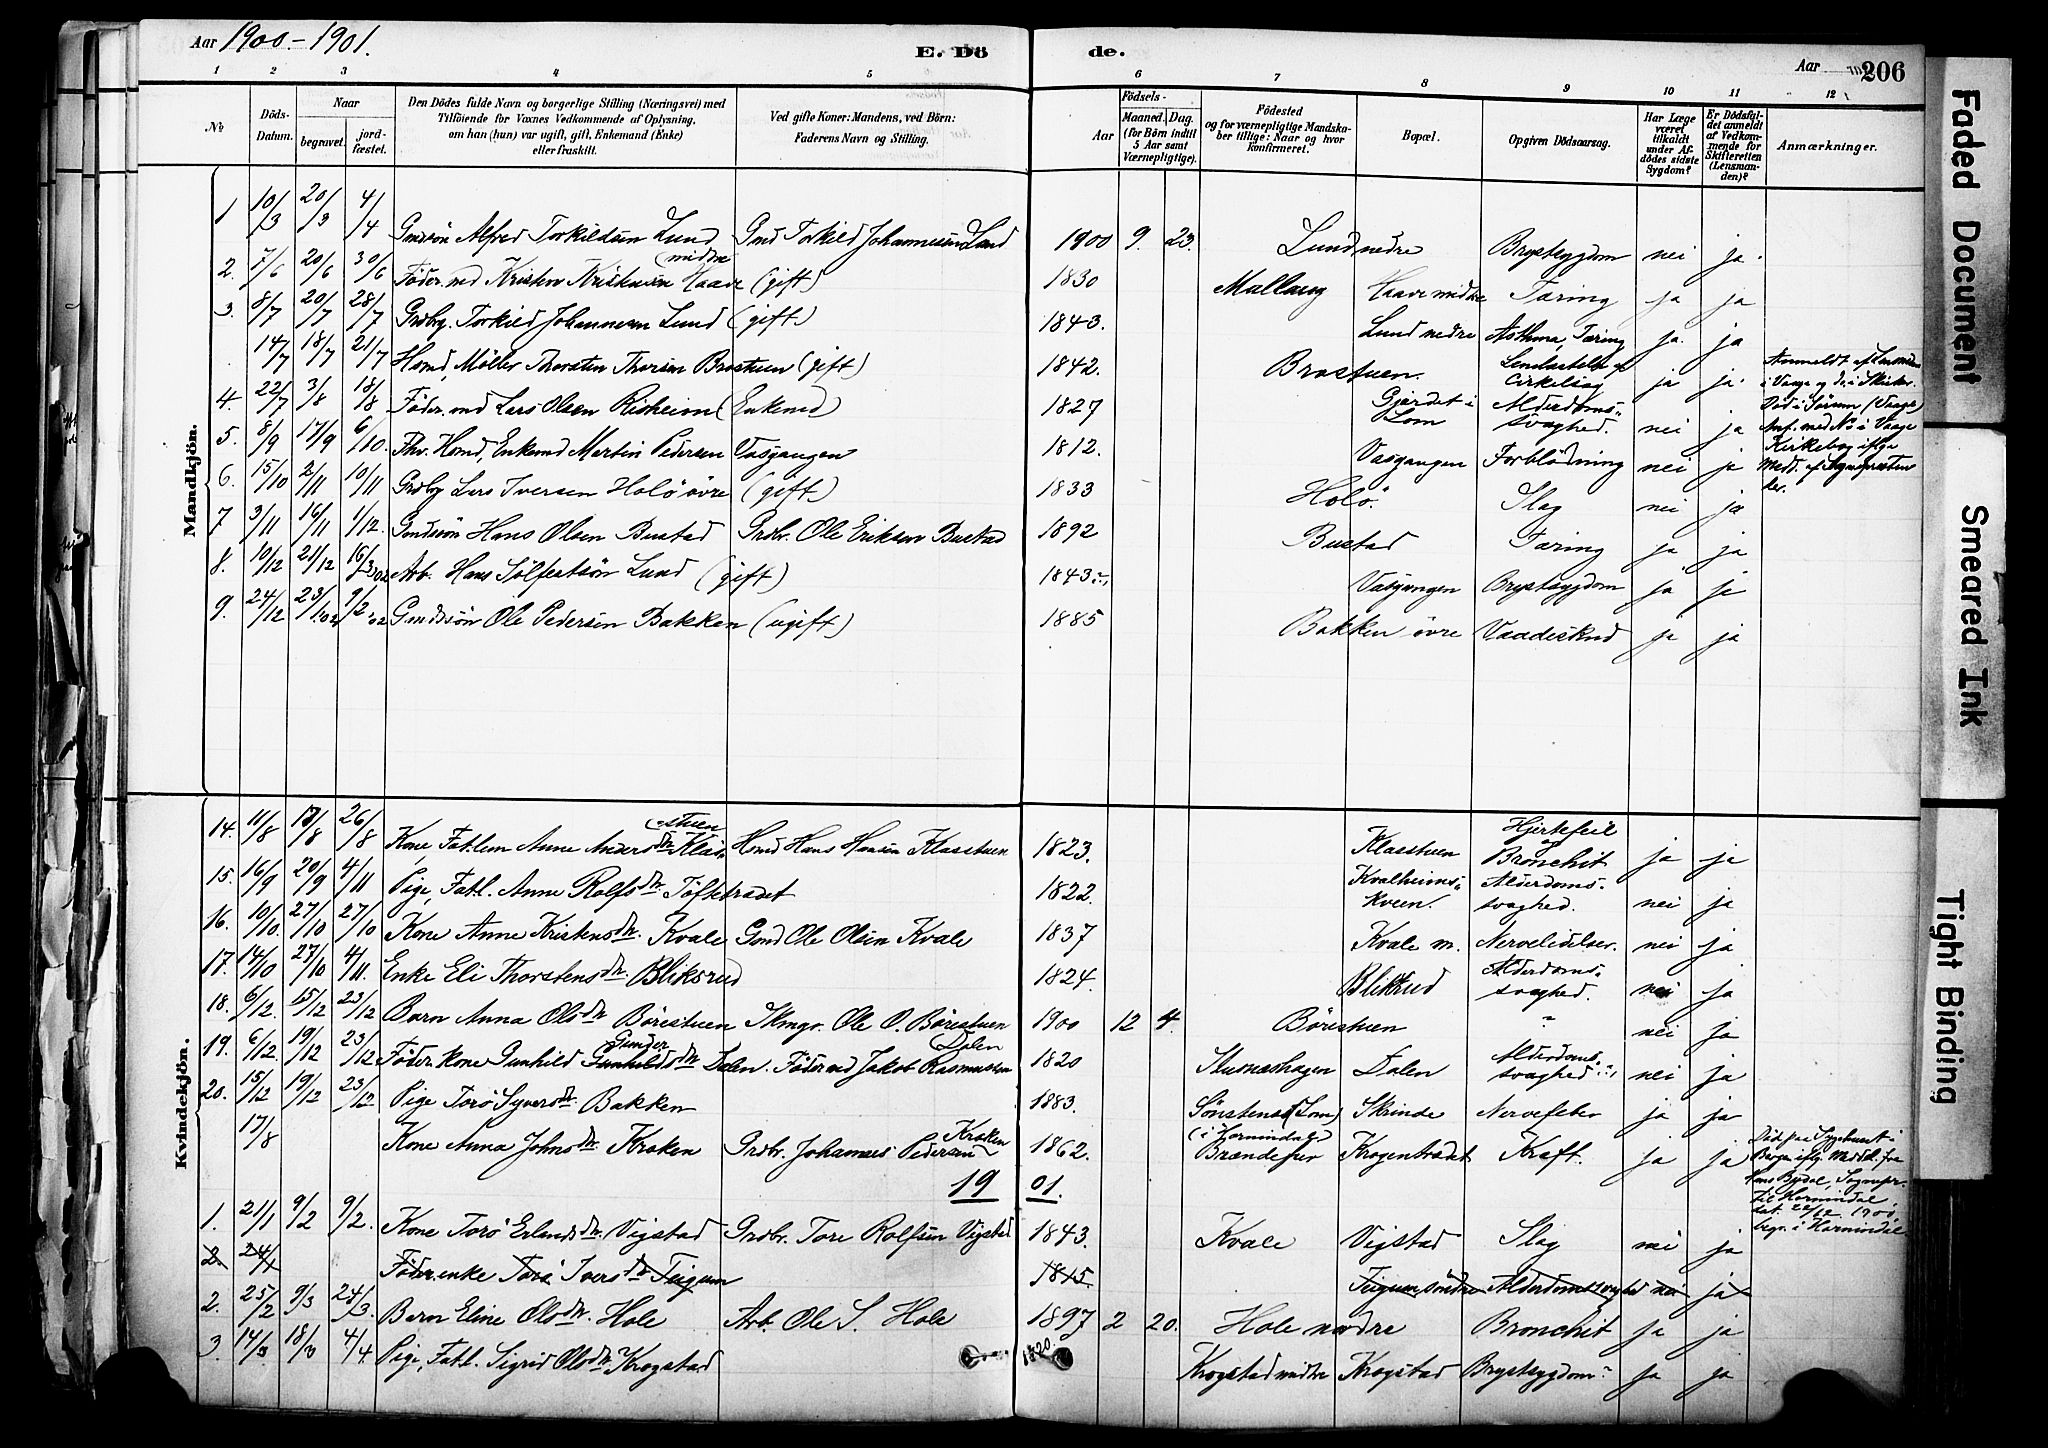 Aar 1900-1901.
E. Döde.
Aar
206
1 2 3 4 5 6 7 8 9 10 11 12
№
Döds-Datum.
Naar
begravet.
jord-fæstet.
Den Dödes fulde Navn og borgerlige Stilling (Næringsvei) med
Tilföiende for Voxnes Vedkommende af Oplysning,
om han (hun) var ugift, gift, Enkemand (Enke)
eller fraskilt.
Ved gifte Koner: Mandens, ved Börn:
Faderens Navn og Stilling.
Födsels-
Aar
Maaned. Dag.
(for Börn indtil
5 Aar samt
Værnepligtige).
Födested
og for værnepligtige Mandska-
ber tillige: Naar og hvor
konfirmeret.
Bopæl.
Opgiven Dödsaarsag.
Har Læge
været
tilkaldt
under Af-
dödes sidste
Sygdom?
Er Dödsfal-
det anmeldt
af Vedkom-
mende for
Skifteretten
(Lensman-
den)?
Anmærkninger.
Mandkjön.
1 10/3 20/3 4/4 Gmdsön Alfred Torkildsen Lund Gmd Torkild Johannesen Lund 1900 9 23 Lund nedre Brystsygdom nei ja.
2. 7/6 20/6 30/6 Föder.md Kristen Kristensen Haave midtre (gift) 1830 Haave midtre Tæring ja ja
3. 8/7 20/7 28/7 Grdbrg. Torkild Johannesen Lund (gift.) 1843. Lund nedre Asthma, Tæring ja. ja
14/7 18/7 21/7 Hsmd, Möller Thorsten Thorsen Brostuen (gift) 1842. Brostuen. Cirkelsag ja ja.
4. 22/7 3/8 18/8 Föder.md Lars Olsen Risheim (Enkemd) 1827 Gjerdet i Lom Alderdoms-svaghed. nei ja
5. 8/9 17/9 6/10. Fhv. Hsmd, Enkemd Martin Pedersen Vasgangen 1812. Vasgangen Forblödning nei ja
6. 15/10 2/11 10/11 Grdbrg Lars Iversen Holö övre (gift) 1833 Holö Slag nei ja
7 3/11 16/11 1/12. Gmdssön Hans Olsen Bustad Grdbr. Ole Eriksen Bustad 1892 Bustad Tæring ja ja
8. 10/12 21/12 16/3 02 Arb. Hans Sölfertsön Lund (gift) 1843 Vasgangen Brystsygdom ja ja
9. 24/12 23/1 02 9/2 02 Gmdssön Ole Pedersen Bakken (ugift) 1885 Bakken övre Vaadeskud ja ja
Kvindekjön.
14. 11/8 /8 26/8 Kone, Fat.lem Anne Andersdtr. Klas-stuen Hsmd Hans Hansen Klasstuen 1823. Klasstuen Hjertefeil og Bronchit ja ja
15. 16/9 20/9 4/11 Pige, Fatl. Anne Rolfsdtr. Töftetrædet 1822. Kvalheims-kveen. Alderdoms-svaghed. nei ja
16. 10/10. 27/10 27/10 Kone Anne Kristensdtr. Kvale Gmd Ole Olsen Kvale 1837 Kvale m. Nervelidelser. nei ja
17. 14/10 27/10 4/11. Enke Eli Thorstensdtr. Bliksrud 1824. Bliksrud Alderdoms-svaghed. nei ja
18. 6/12. 15/12 23/12 Barn Anna Olsdtr Börestuen Skmgr. Ole O. Börestuen 1900 12 4. Börestuen ? nei ja
19. 6/12. 19/12 23/12 Föder.kone Gunhild Gunderdtr Dalen. Föder.md Jakob Rasmussen Dalen 1820 Dalen Alderdoms-svaghed nei ja
20. 15/12 19/12 23/12 Pige Torö Syversdtr Bakken 1883. Sönstenes (Lom) Skrinde Nervefeber ja ja
17/8 Kone Anna Johnsdtr. Kroken Grdbr. Johannes Pedersen Kroken 1862. (i Hornindal) Krogentrædet Kræft. ja ja
1901.
1. 21/1 9/2 9/2. Kone Torö Erlandsdtr. Vigstad Grdbr. Tore Rolfsen Vigstad 1843. Kvale Vigstad Slag nei ja
2. 24/1 Föder.enke Torö Iversdtr Teigum 1815. Teigum söndre Alderdomssvaghed nei ja
2. 25/2 9/3 24/3. Barn Eline Olsdtr. Hole Arb. Ole S. Hole 1897 2 20. Hole nordre Bronchit ja ja
3. 14/3 18/3 4/4 Pige, Fatl. Sigrid Olsdtr. Krogstad 1820 Krogstad midtre Krogstad Brystsygdom ja ja
Faded Document
Smeared Ink
Tight Binding